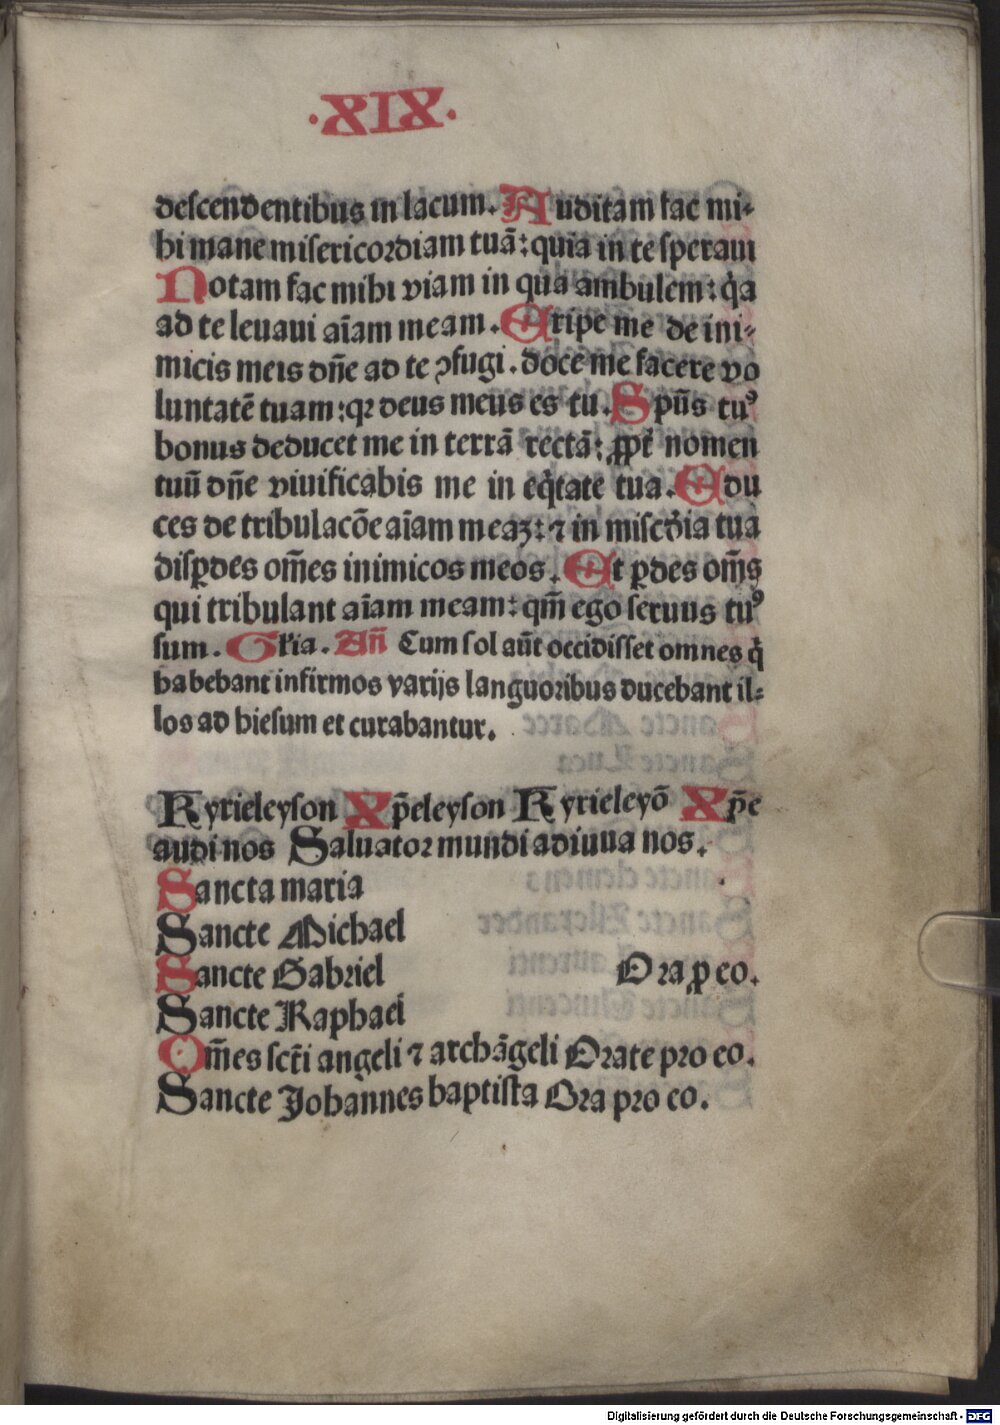 ·XIX·
descendentibus in lacum. Auditam fac mi-
hi mane misericordiam tuã: quia in te speraui
Notam fac mihi viam in qua ambulem: q̃a
ad te leuaui aĩam meam. Eripe me de ini-
micis meis dñe ad te ꝯfugi. doce me facere vo
luntatẽ tuam: qꝛ deus meus es tu. Spũs tuꝰ
bonus deducet me in terrã rectã: ꝓpť nomen
tuũ dñe viuificabis me in eq̃tate tua. Edu
ces de tribulacõe aĩam meaꝫ: ⁊ in misc̃dia tua
disꝑdes om̃es inimicos meos. Et ꝑdes om̃s
qui tribulant aĩam meam: qm̃ ego seruus tuꝰ
sum. Gľia. Añ Cum sol aũt occidisset omnes q̃
habebant infirmos varijs languoribus ducebant il-
los ad hiesum et curabantur.
Kyrieleyson Xp̃eleyson Kyrieleyõ Xp̃e
audi nos Saluator mundi adiuua nos.
Sancta maria
Sancte Michael
Sancte Gabriel Ora ꝓ eo.
Sancte Raphael
Om̃es scť̃i angeli ⁊ archãgeli Orate pro eo.
Sancte Johannes baptista Ora pro eo.
Digitalisierung gefördert durch die Deutsche Forschungsgemeinschaft - DFG